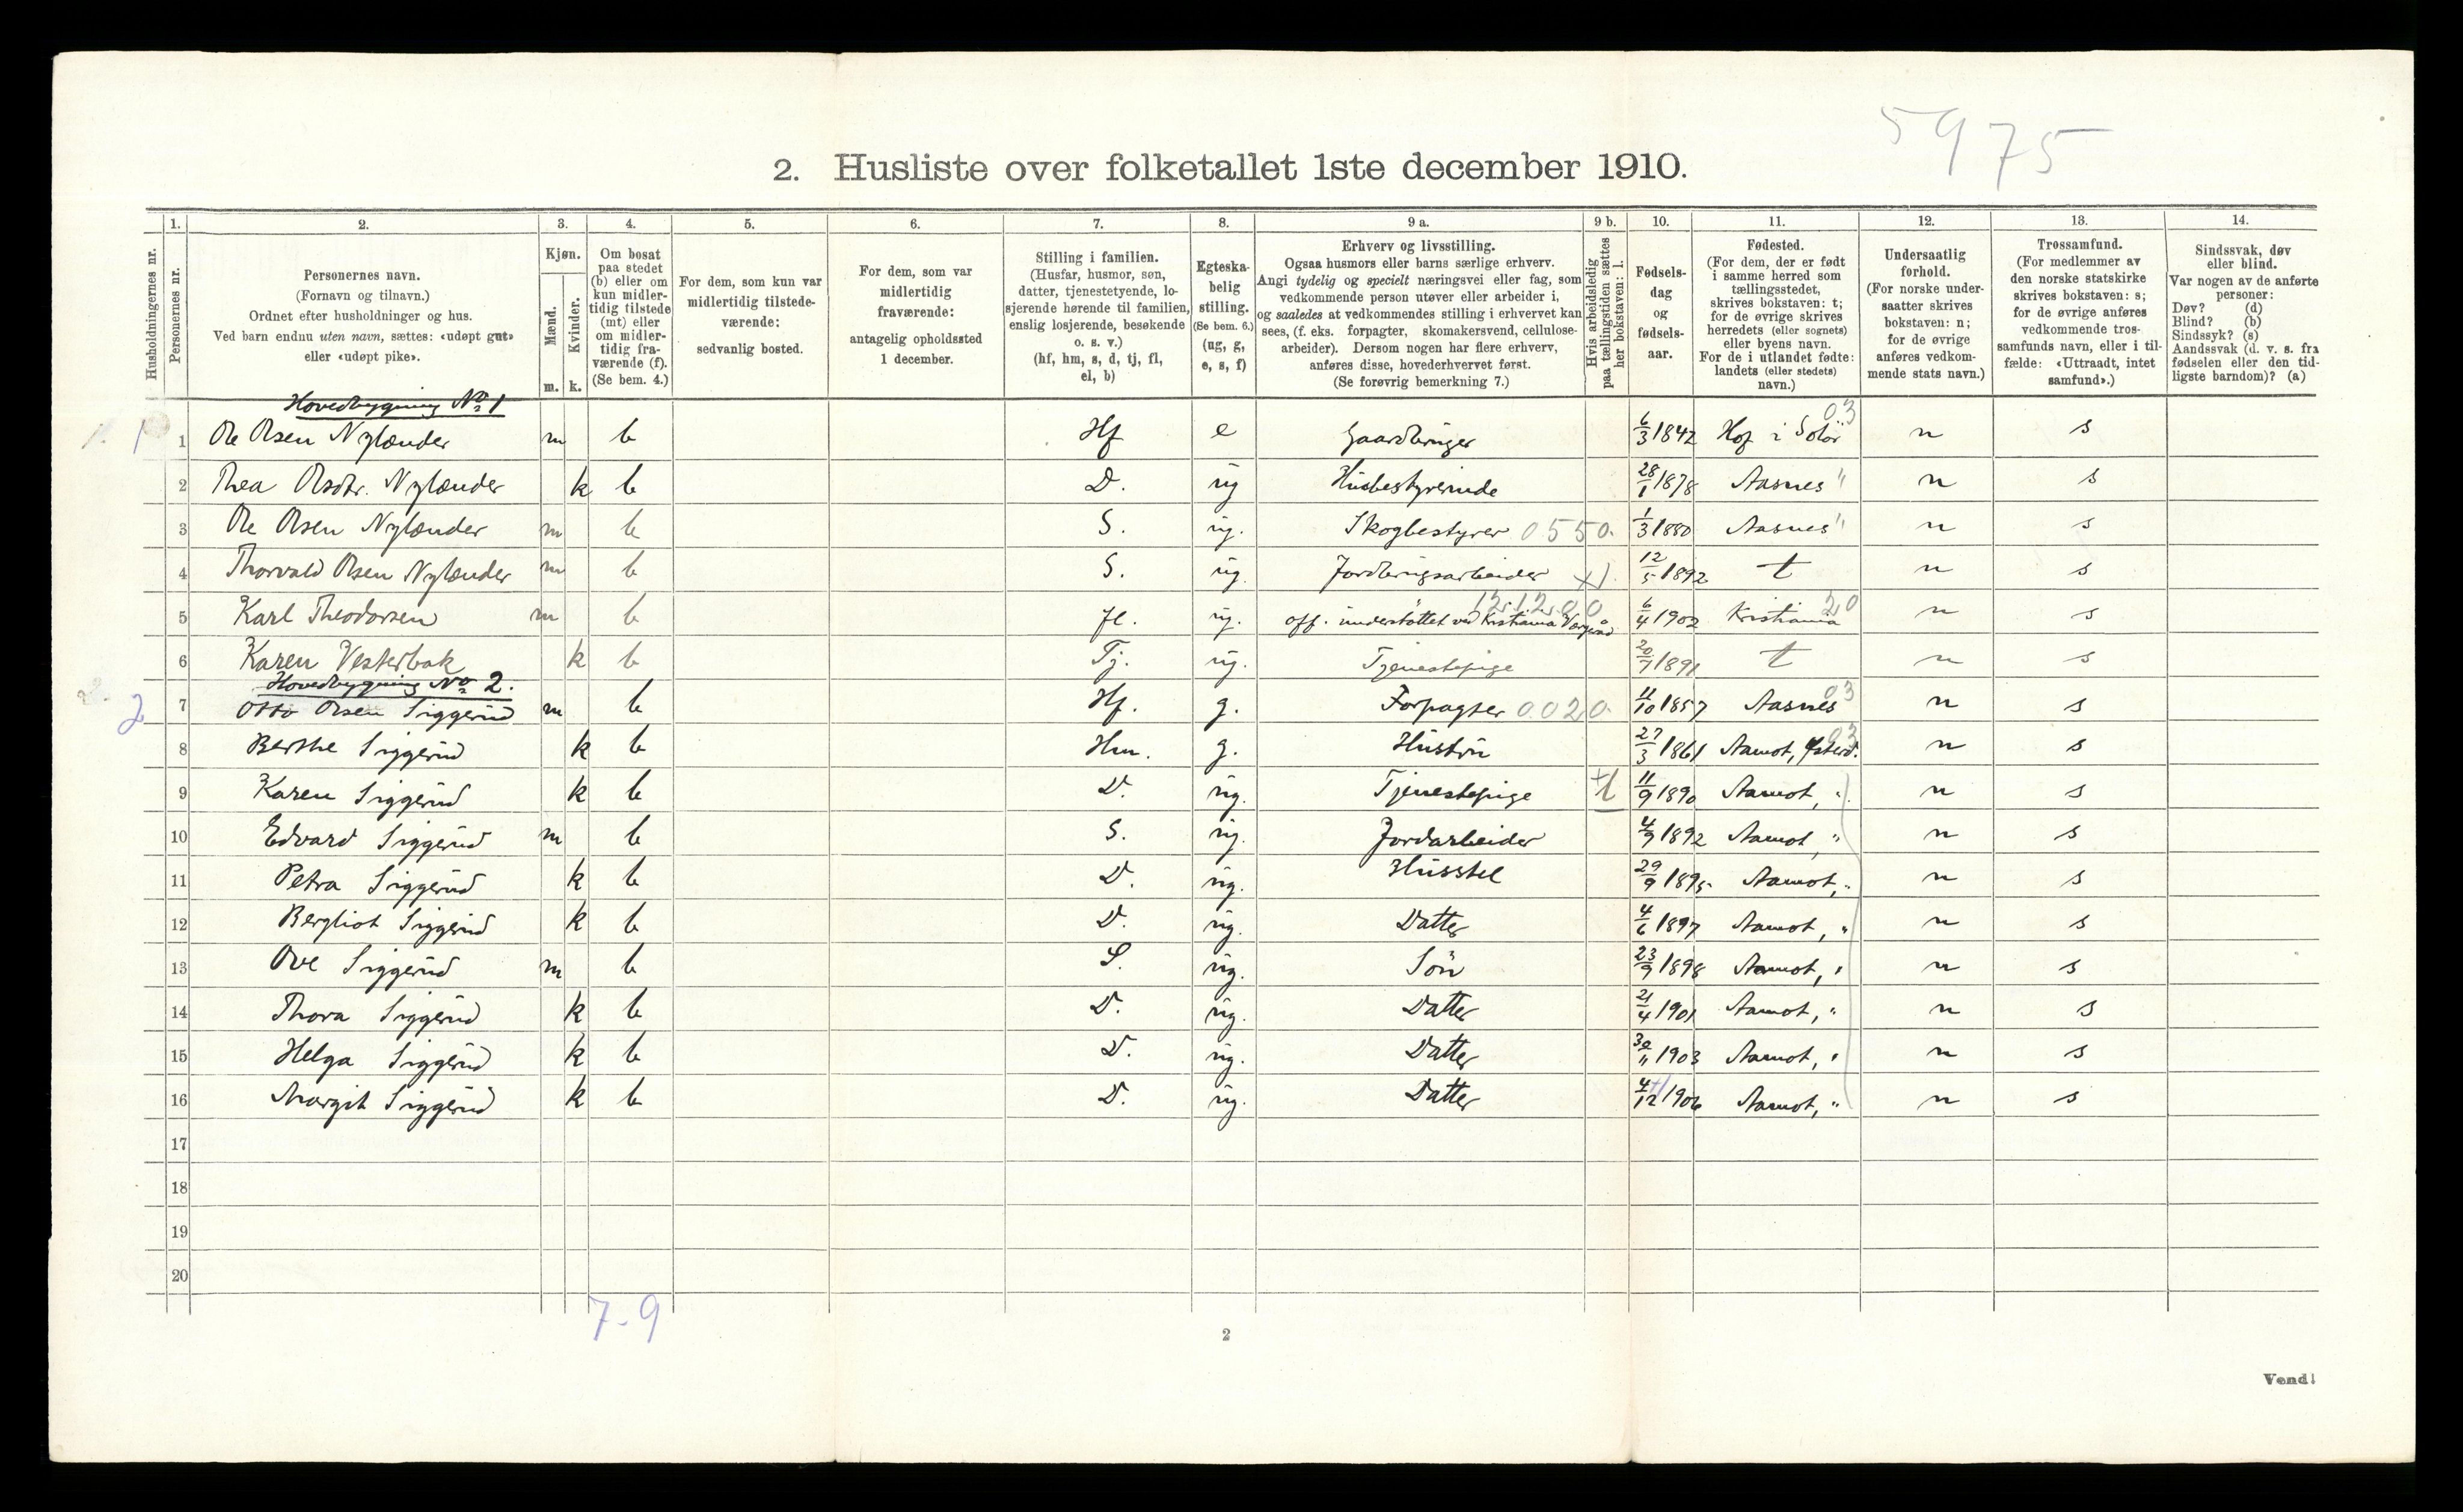 5975
2. Husliste over folketallet 1ste december 1910.
Husholdningernes nr.
1. Personernes nr.
2. Personernes navn.
(Fornavn og tilnavn.)
Ordnet efter husholdninger og hus.
Ved barn endnu uten navn, sættes: «udøpt gut»
eller «udøpt pike».
3. Kjøn.
Mænd. m.
Kvinder. k.
4. Om bosat
paa stedet
(b) eller om
kun midler-
tidig tilstede
(mt) eller
om midler-
tidig fra-
værende (f).
(Se bem. 4.)
5. For dem, som kun var
midlertidig tilstede-
værende:
sedvanlig bosted.
6. For dem, som var
midlertidig
fraværende:
antagelig opholdssted
1 december.
7. Stilling i familien.
(Husfar, husmor, søn,
datter, tjenestetyende, lo-
sjerende hørende til familien,
enslig losjerende, besøkende
o. s. v.)
(hf, hm, s, d, tj, fl,
el, b)
8. Egteska-
belig
stilling.
(Se bem. 6.)
(ug, g,
e, s, f)
9 a. Erhverv og livsstilling.
Ogsaa husmors eller barns særlige erhverv.
Angi tydelig og specielt næringsvei eller fag, som
vedkommende person utøver eller arbeider i,
og saaledes at vedkommendes stilling i erhvervet kan
sees, (f. eks. forpagter, skomakersvend, cellulose-
arbeider). Dersom nogen har flere erhverv,
anføres disse, hovederhvervet først.
(Se forøvrig bemerkning 7.)
9 b. Hvis arbeidsledig
paa tællingstiden sættes
her bokstaven: l.
10. Fødsels-
dag
og
fødsels-
aar.
11. Fødested.
(For dem, der er født
i samme herred som
tællingsstedet,
skrives bokstaven: t;
for de øvrige skrives
herredets (eller sognets)
eller byens navn.
For de i utlandet fødte:
landets (eller stedets)
navn.)
12. Undersaatlig
forhold.
(For norske under-
saatter skrives
bokstaven: n;
for de øvrige
anføres vedkom-
mende stats navn.)
13. Trossamfund.
(For medlemmer av
den norske statskirke
skrives bokstaven: s;
for de øvrige anføres
vedkommende tros-
samfunds navn, eller i til-
fælde: «Uttraadt, intet
samfund».)
14. Sindssvak, døv
eller blind.
Var nogen av de anførte
personer:
Døv? (d)
Blind? (b)
Sindssyk? (s)
Aandssvak (d. v. s. fra
fødselen eller den tid-
ligste barndom)? (a)
Hovedbygning No 1
1 1 Ole Olsen Nylænder m b Hf e Gaardbruger 6/3 1842 Hof i Solør 03 n s
2 Thea Olsdtr. Nylænder k b D. ug Husbestyrerinde 28/1 1878 Aasnes " n s
3 Ole Olsen Nylænder m b S. ug. Skogbestyrer 0550. 1/3 1880 Aasnes " n s
4 Thorvald Olsen Nylænder m b S. ug. Jordbrugsarbeider 12/5 1892 t n s
5 Karl Theodorsen m b fl. ug. off. understøttet ved Kristiania Værgeraad 12.12.00 6/4 1902 Kristiania 20 n s
6 Karen Vesterbak k b Tj. ug. Tjenestepige 20/7 1891 t n s
Hovedbygning No 2.
2 7 Otto Olsen Siggerud m b Hf. g. Forpagter 0020 11/10 1857 Aasnes 03 n s
8 Berthe Siggerud k b Hm. g. Hustru 27/3 1861 Aamot, Østerd. 03 n s
9 Karen Siggerud k b D. ug. Tjenestepige l 11/9 1890 Aamot, " n s
10 Edvard Siggerud m b S. ug. Jordarbeider 4/9 1892 Aamot, " n s
11 Petra Siggerud k b D. ug. Husstel 29/9 1895 Aamot, " n s
12 Bergliot Siggerud k b D. ug. Datter 4/6 1897 Aamot, " n s
13 Ove Siggerud m b S. ug. Søn 23/9 1898 Aamot, " n s
14 Thora Siggerud k b D. ug. Datter 21/4 1901 Aamot, " n s
15 Helga Siggerud k b D. ug. Datter 30/11 1903 Aamot, " n s
16 Margit Siggerud k b D. ug. Datter 4/12 1906 Aamot, " n s
17
18
19
20
7-9
2
Vend!